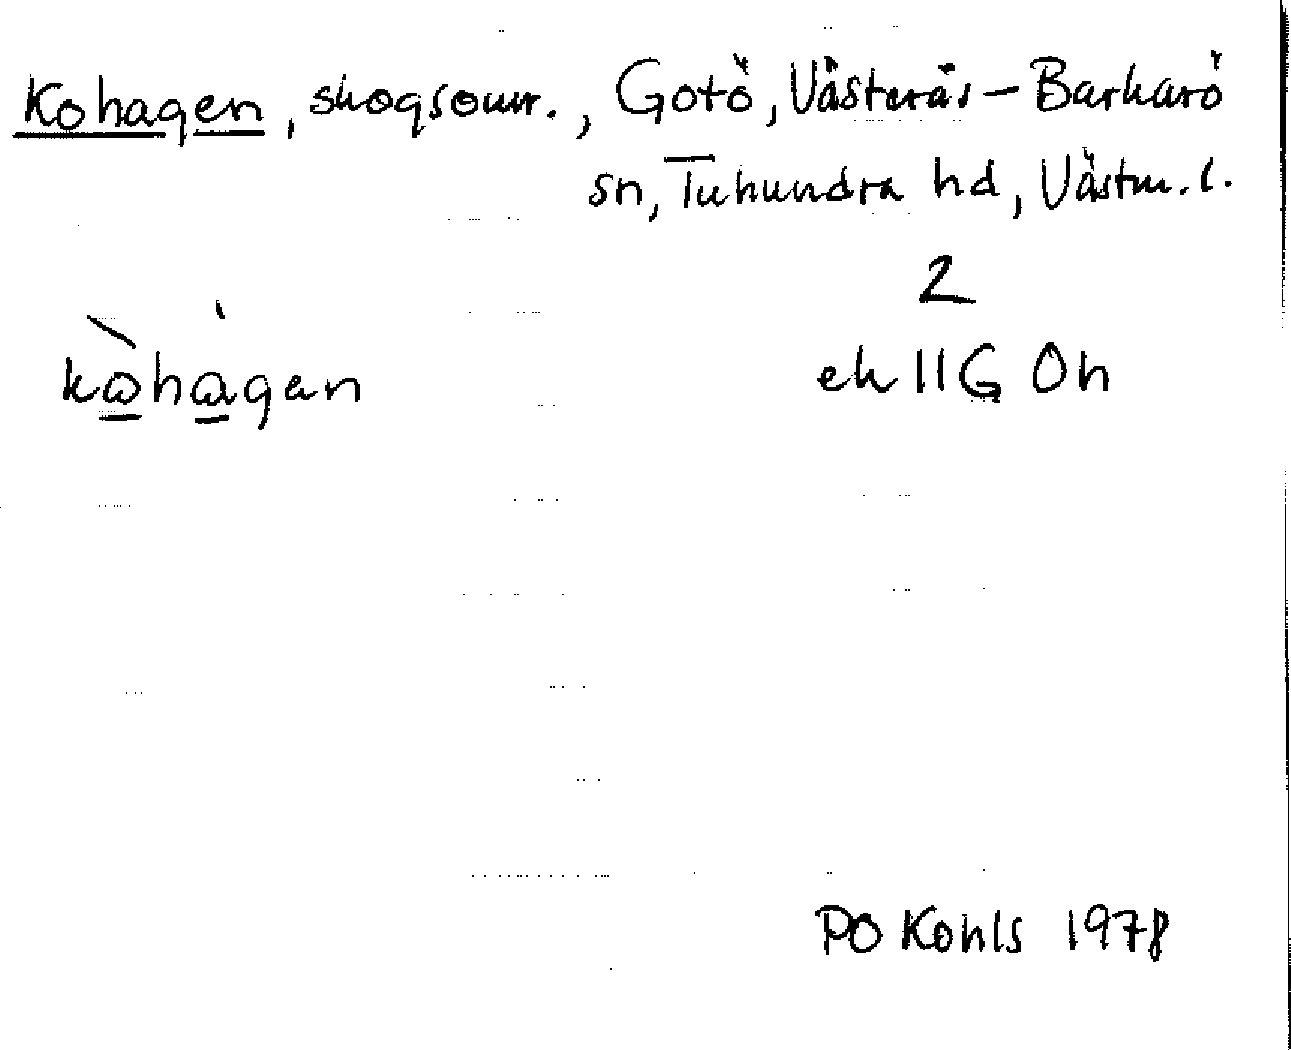 Kohagen, skogsområ., Gotö, Västerås-Barkarö
sn, Tuhundra hd, Västm. l.
2
kòhàgen
ek 11G Oh
PO Kohls 1978